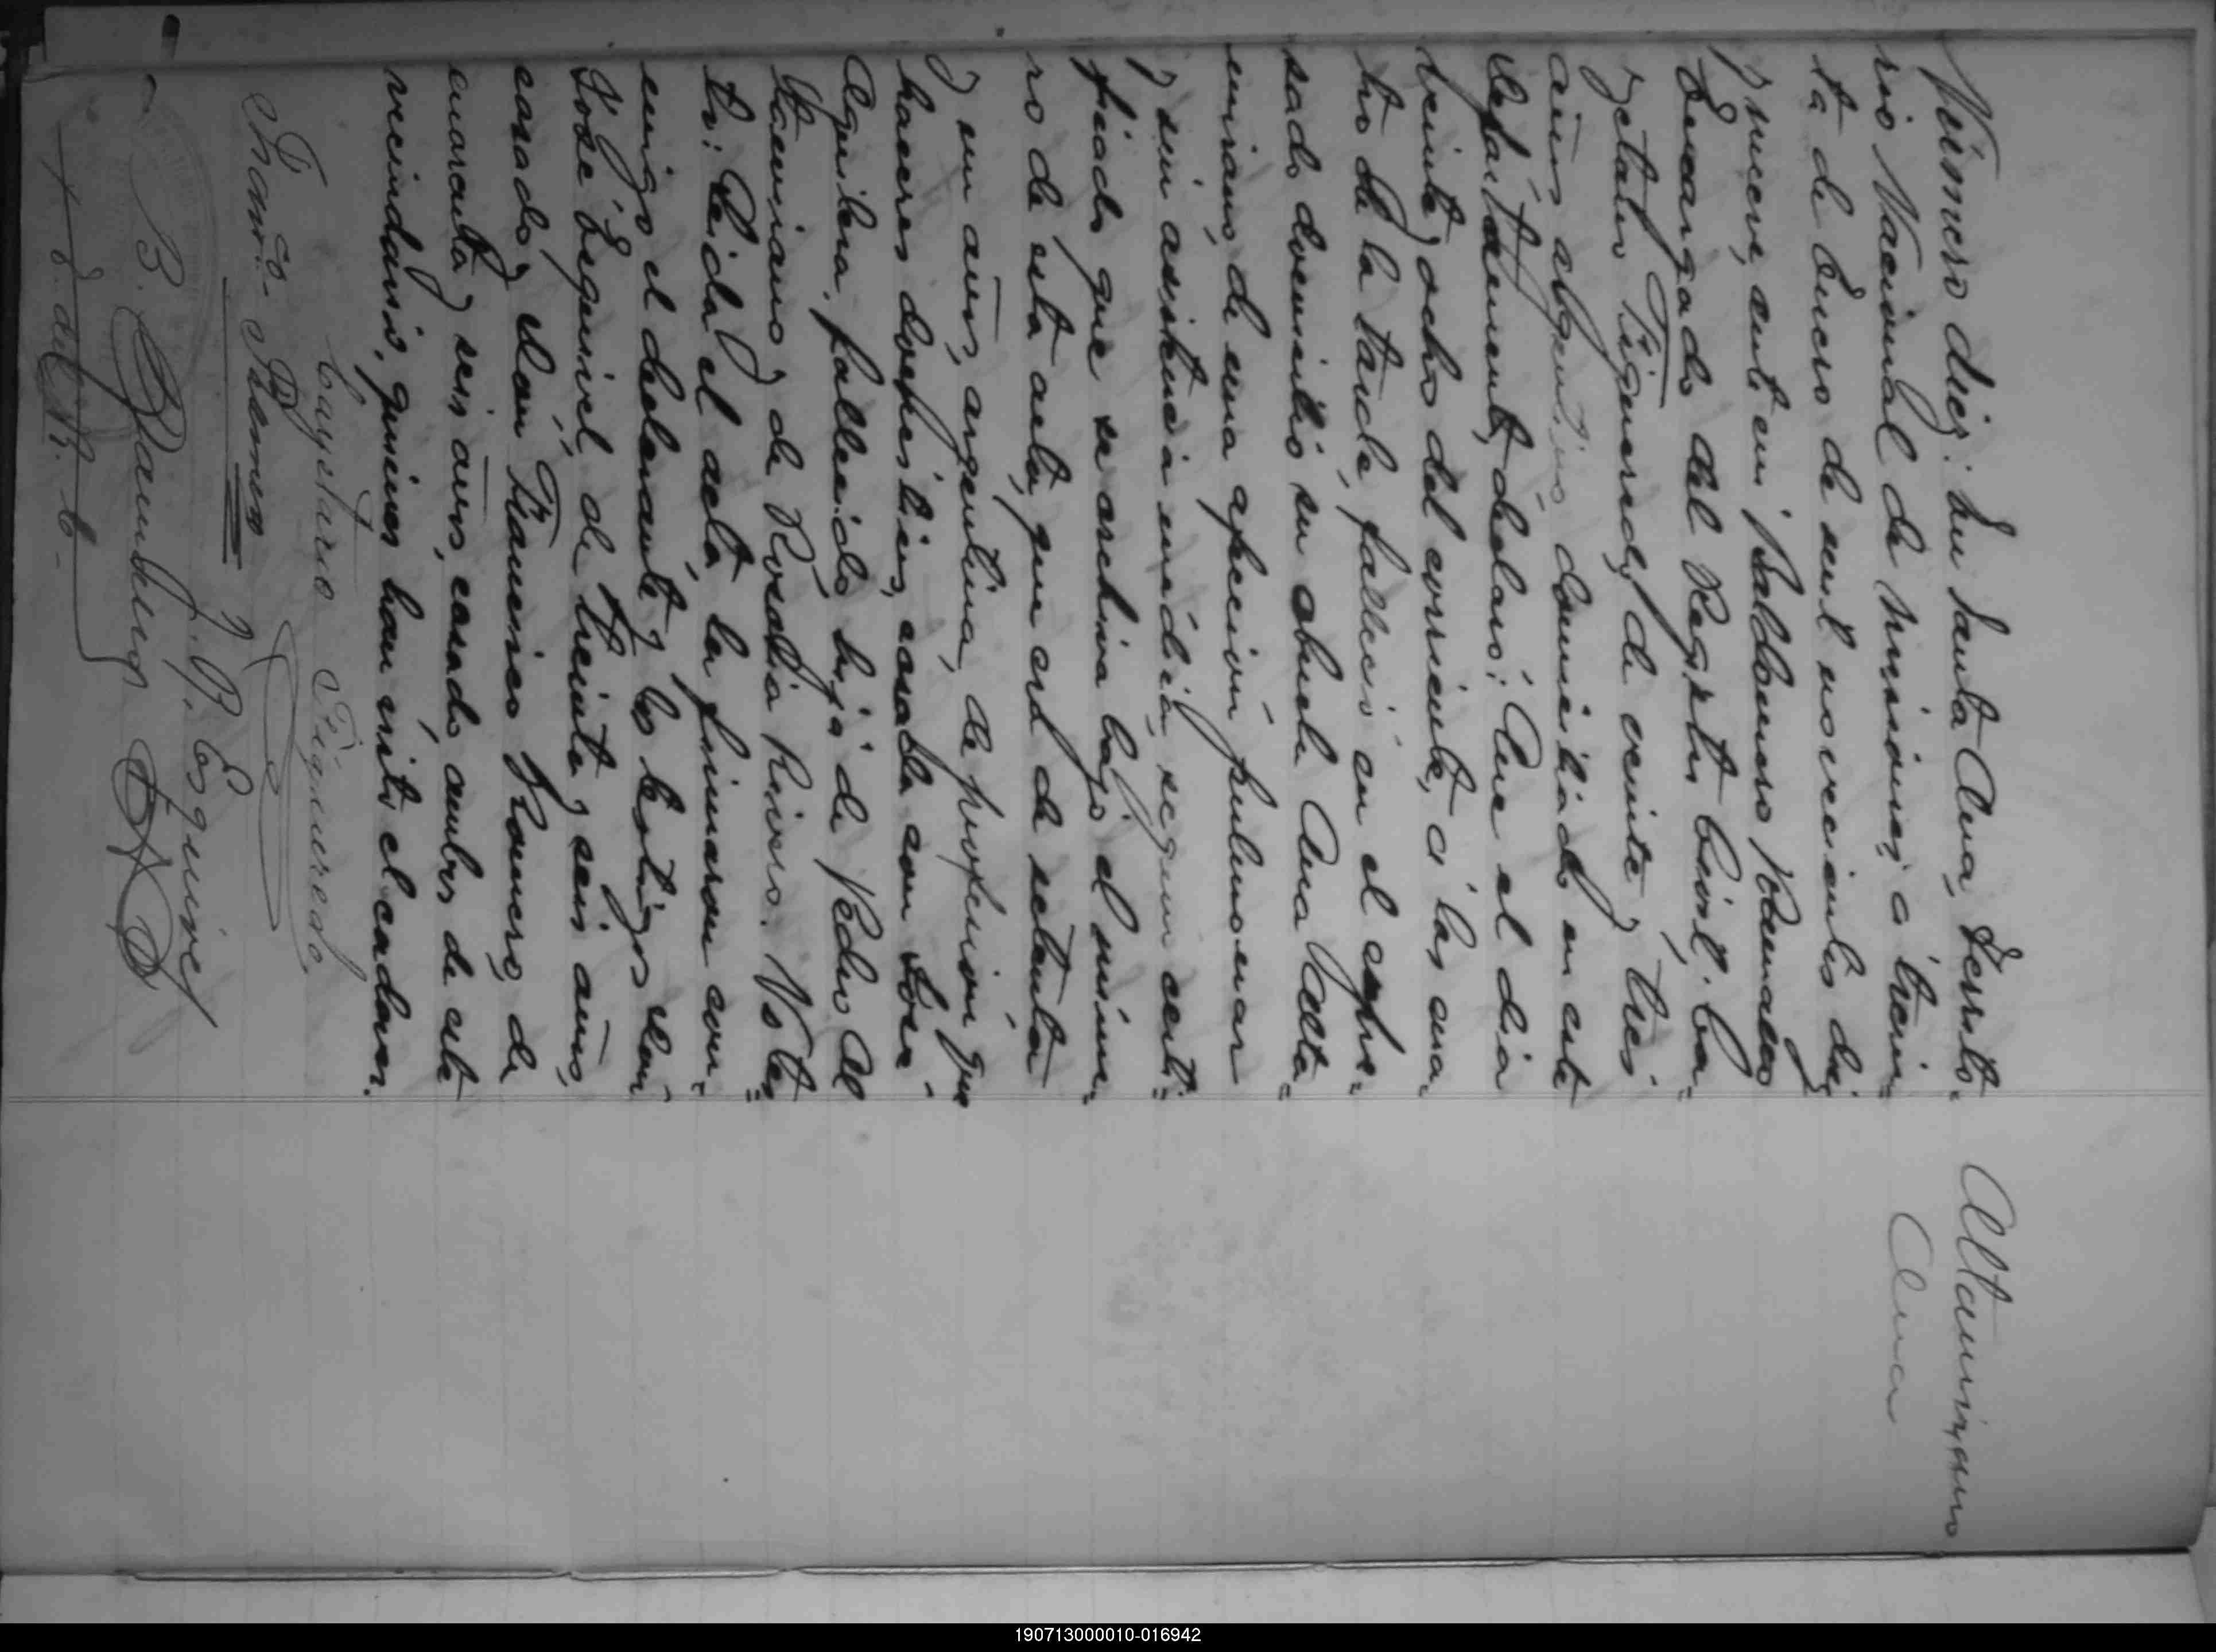 Número diez: En Santa Ana, Territo-
rio Nacional de Misiones, a trein-
ta de Enero de mil novecientos diez
y nueve, ante mi Baldomero
Encargado del Registro Civil. Ca-
yetano Figueredo, de veinte y tres
años argentino domiciliado en este
Departamento, declaró: Que el día
veinte y ocho del corriente, a las cua-
tro de la tarde, falleció en el expre-
sado domicilio su abuela Ana Alta-
mirano, de una afección pulmonar
y sin asistencia médica, segun certi-
ficado que se archiva bajo el núme-
ro de esta acta, que era de setenta
y un años, argentina, de profesión que-
haceres domésticos, casada con José
Aguilera, fallecido, hija de Pedro Al
tamirano y de Rosalia Rivero.
to: Leida el acta la firmaron con-
migo el declarante y los testigos don
José Esquivel, de treinta y seis años,
casado, y don Francisco Romero, de
cuarenta y seis años, casado, ambos de este
vecindario, quienes han visto el cadaver.
Cayetano Figueredo
Franco. Romero
J. B. Esquivel
B.
E. del R. C.
Altamirano
Ana
190713000010-016942